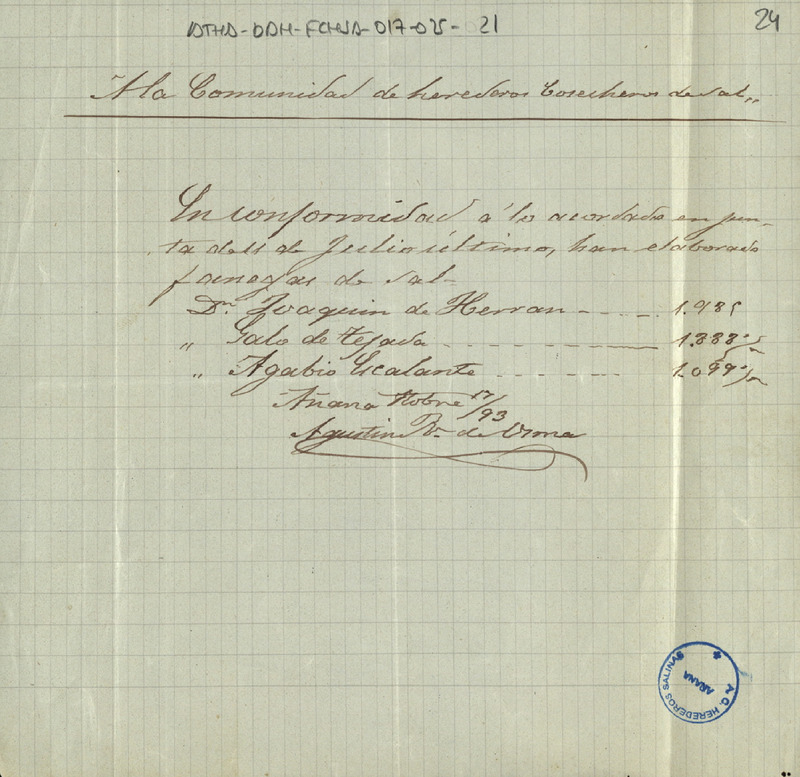 ATHA-DAH-FCHSA-017-025-21
24
A la Comunidad de herederos Cosecheros de Sal,,
En conformidad á lo acordado en jun-
ta del 1 de Julio último, han elaborado
fanegas de sal
Dn. Joaquin de Herran - - - - 1.985
,, Galo de Tejada - - - - 1.333
,, Agabio Escalante - - - - 1.099
Añana 17/93
Agustin Rz. de Orma
A.C. HEREDEROS SALINAS
AÑANA